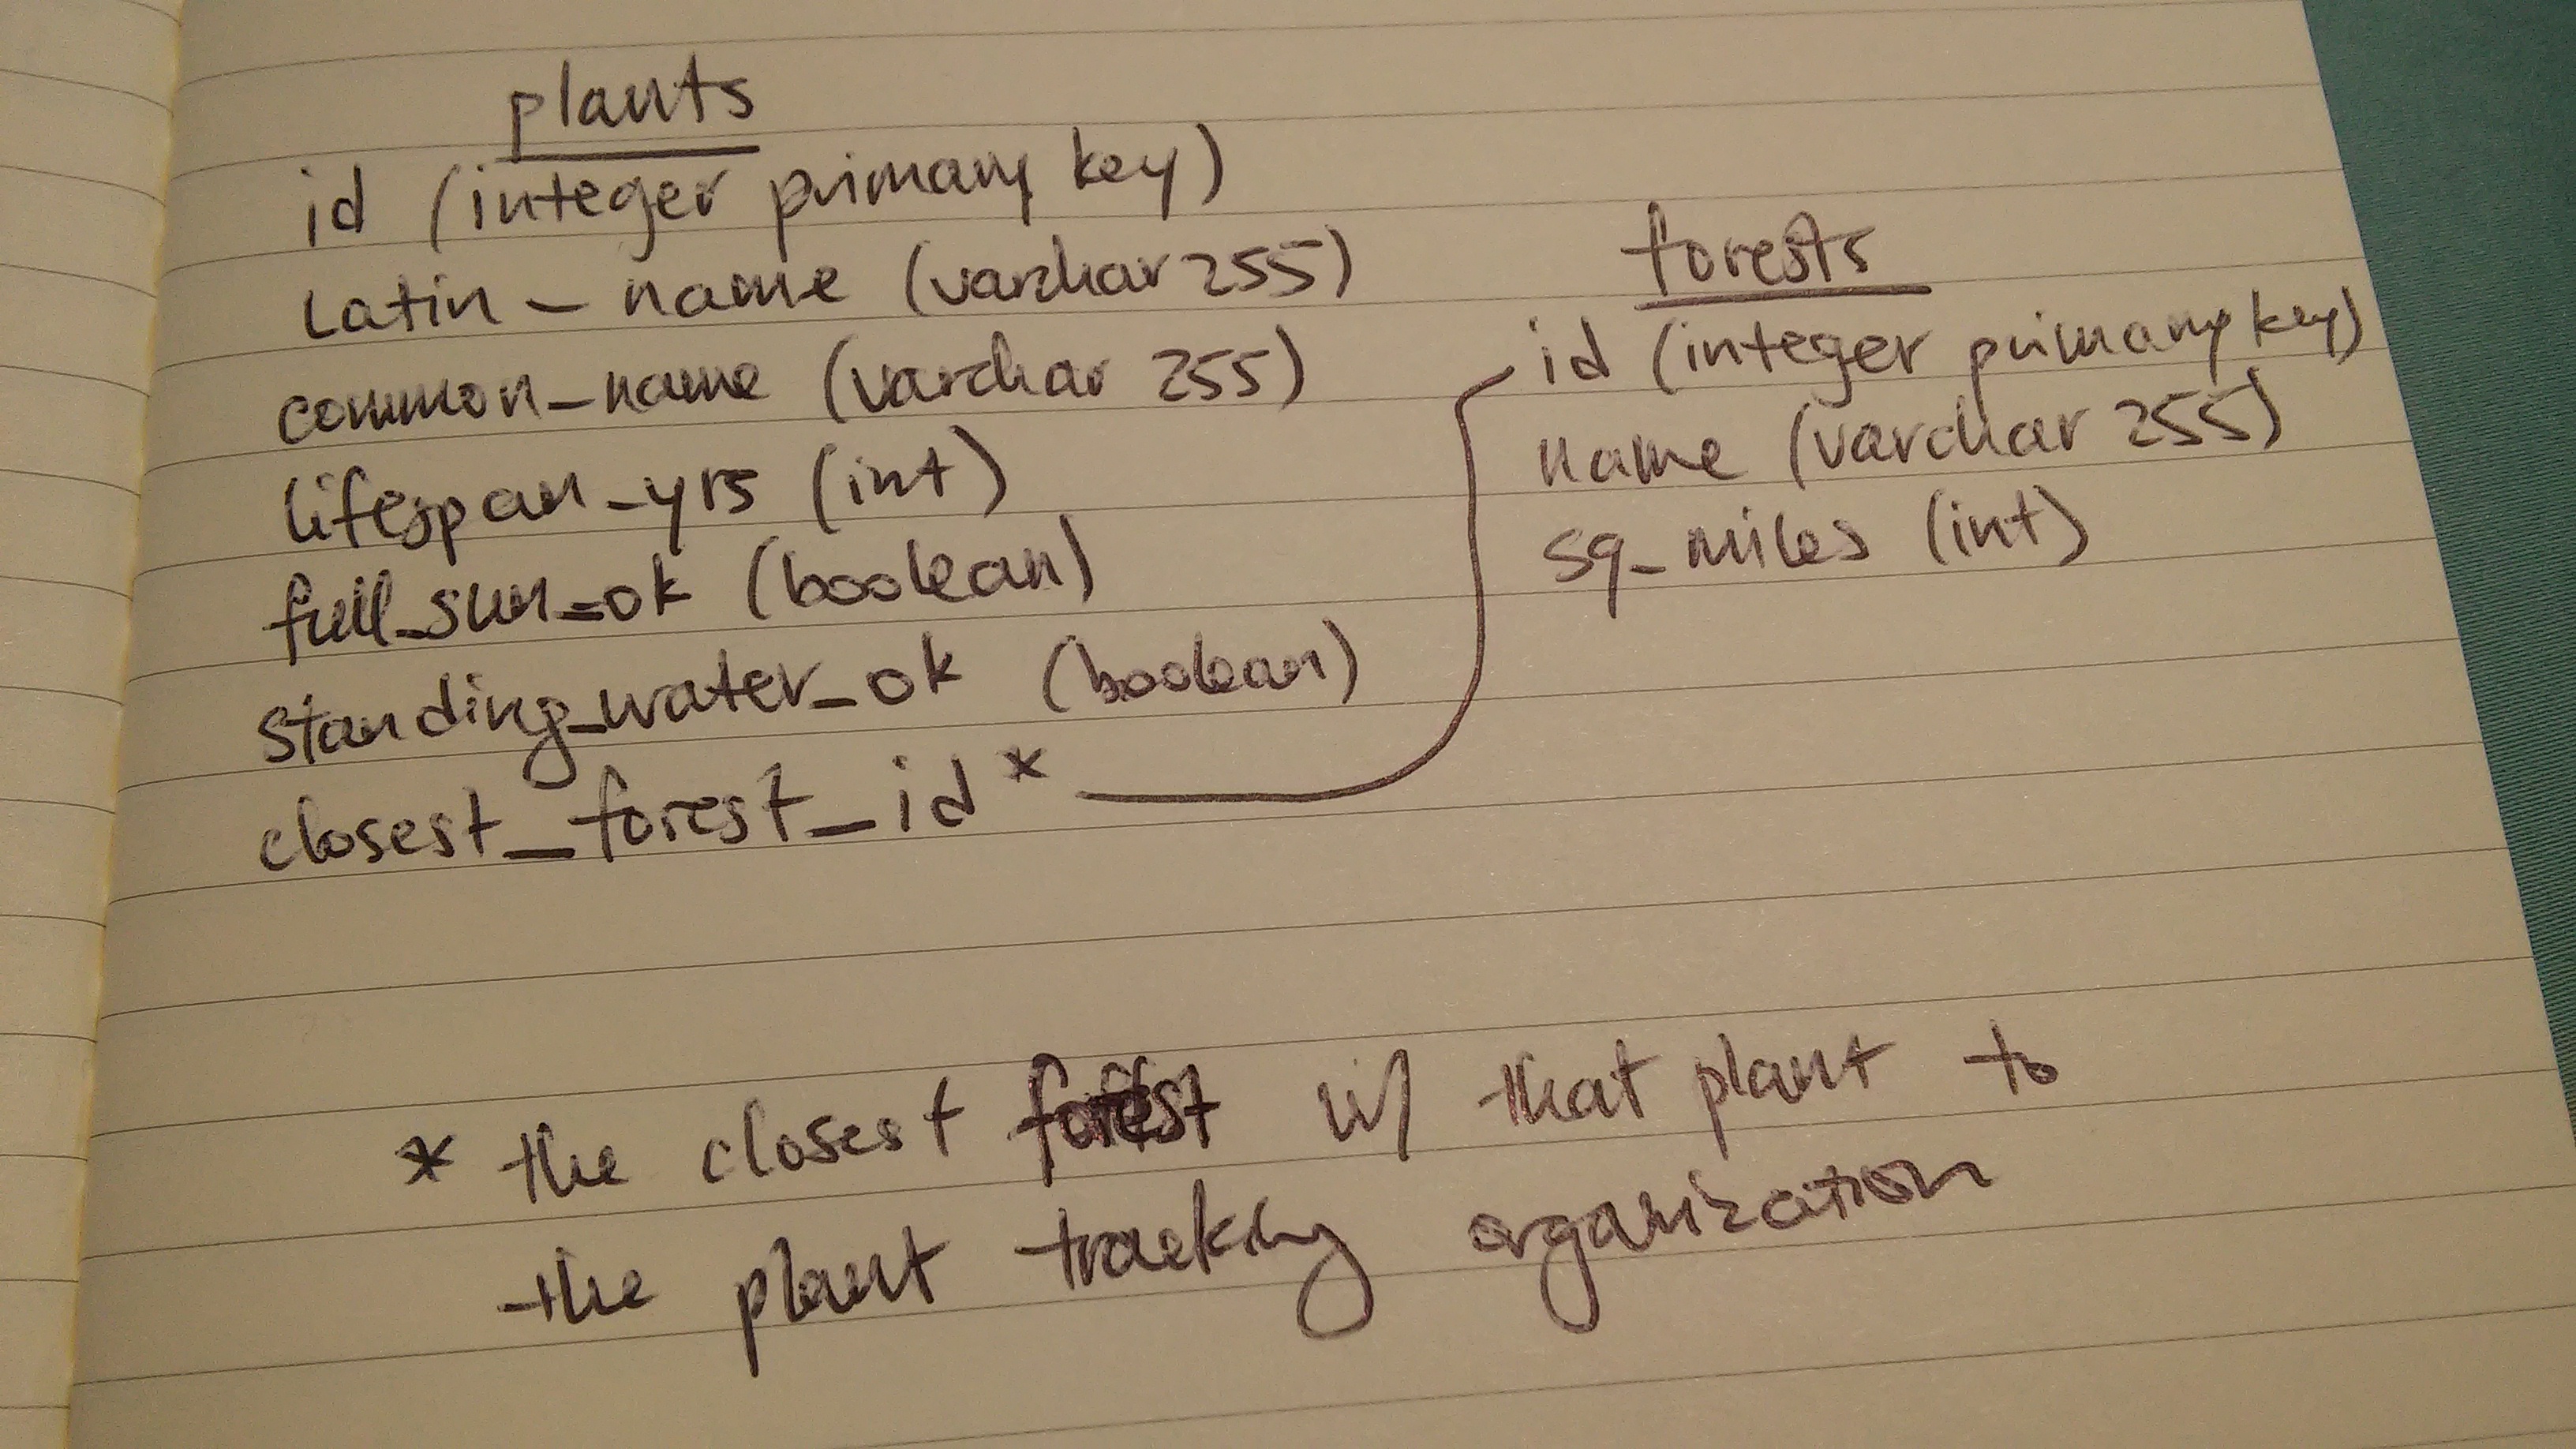 plants
id (integer primary key)
Latin_name (varchar 255)
common_name (varchar 255)
lifespan_yrs (int)
full_sun_ok (boolean)
standing_water_ok (boolean)
closest_forest_id *
forests
id (integer primary key)
name (varchar 255)
sq_miles (int)
* the closest forest w/ that plant to
the plant tracking organization